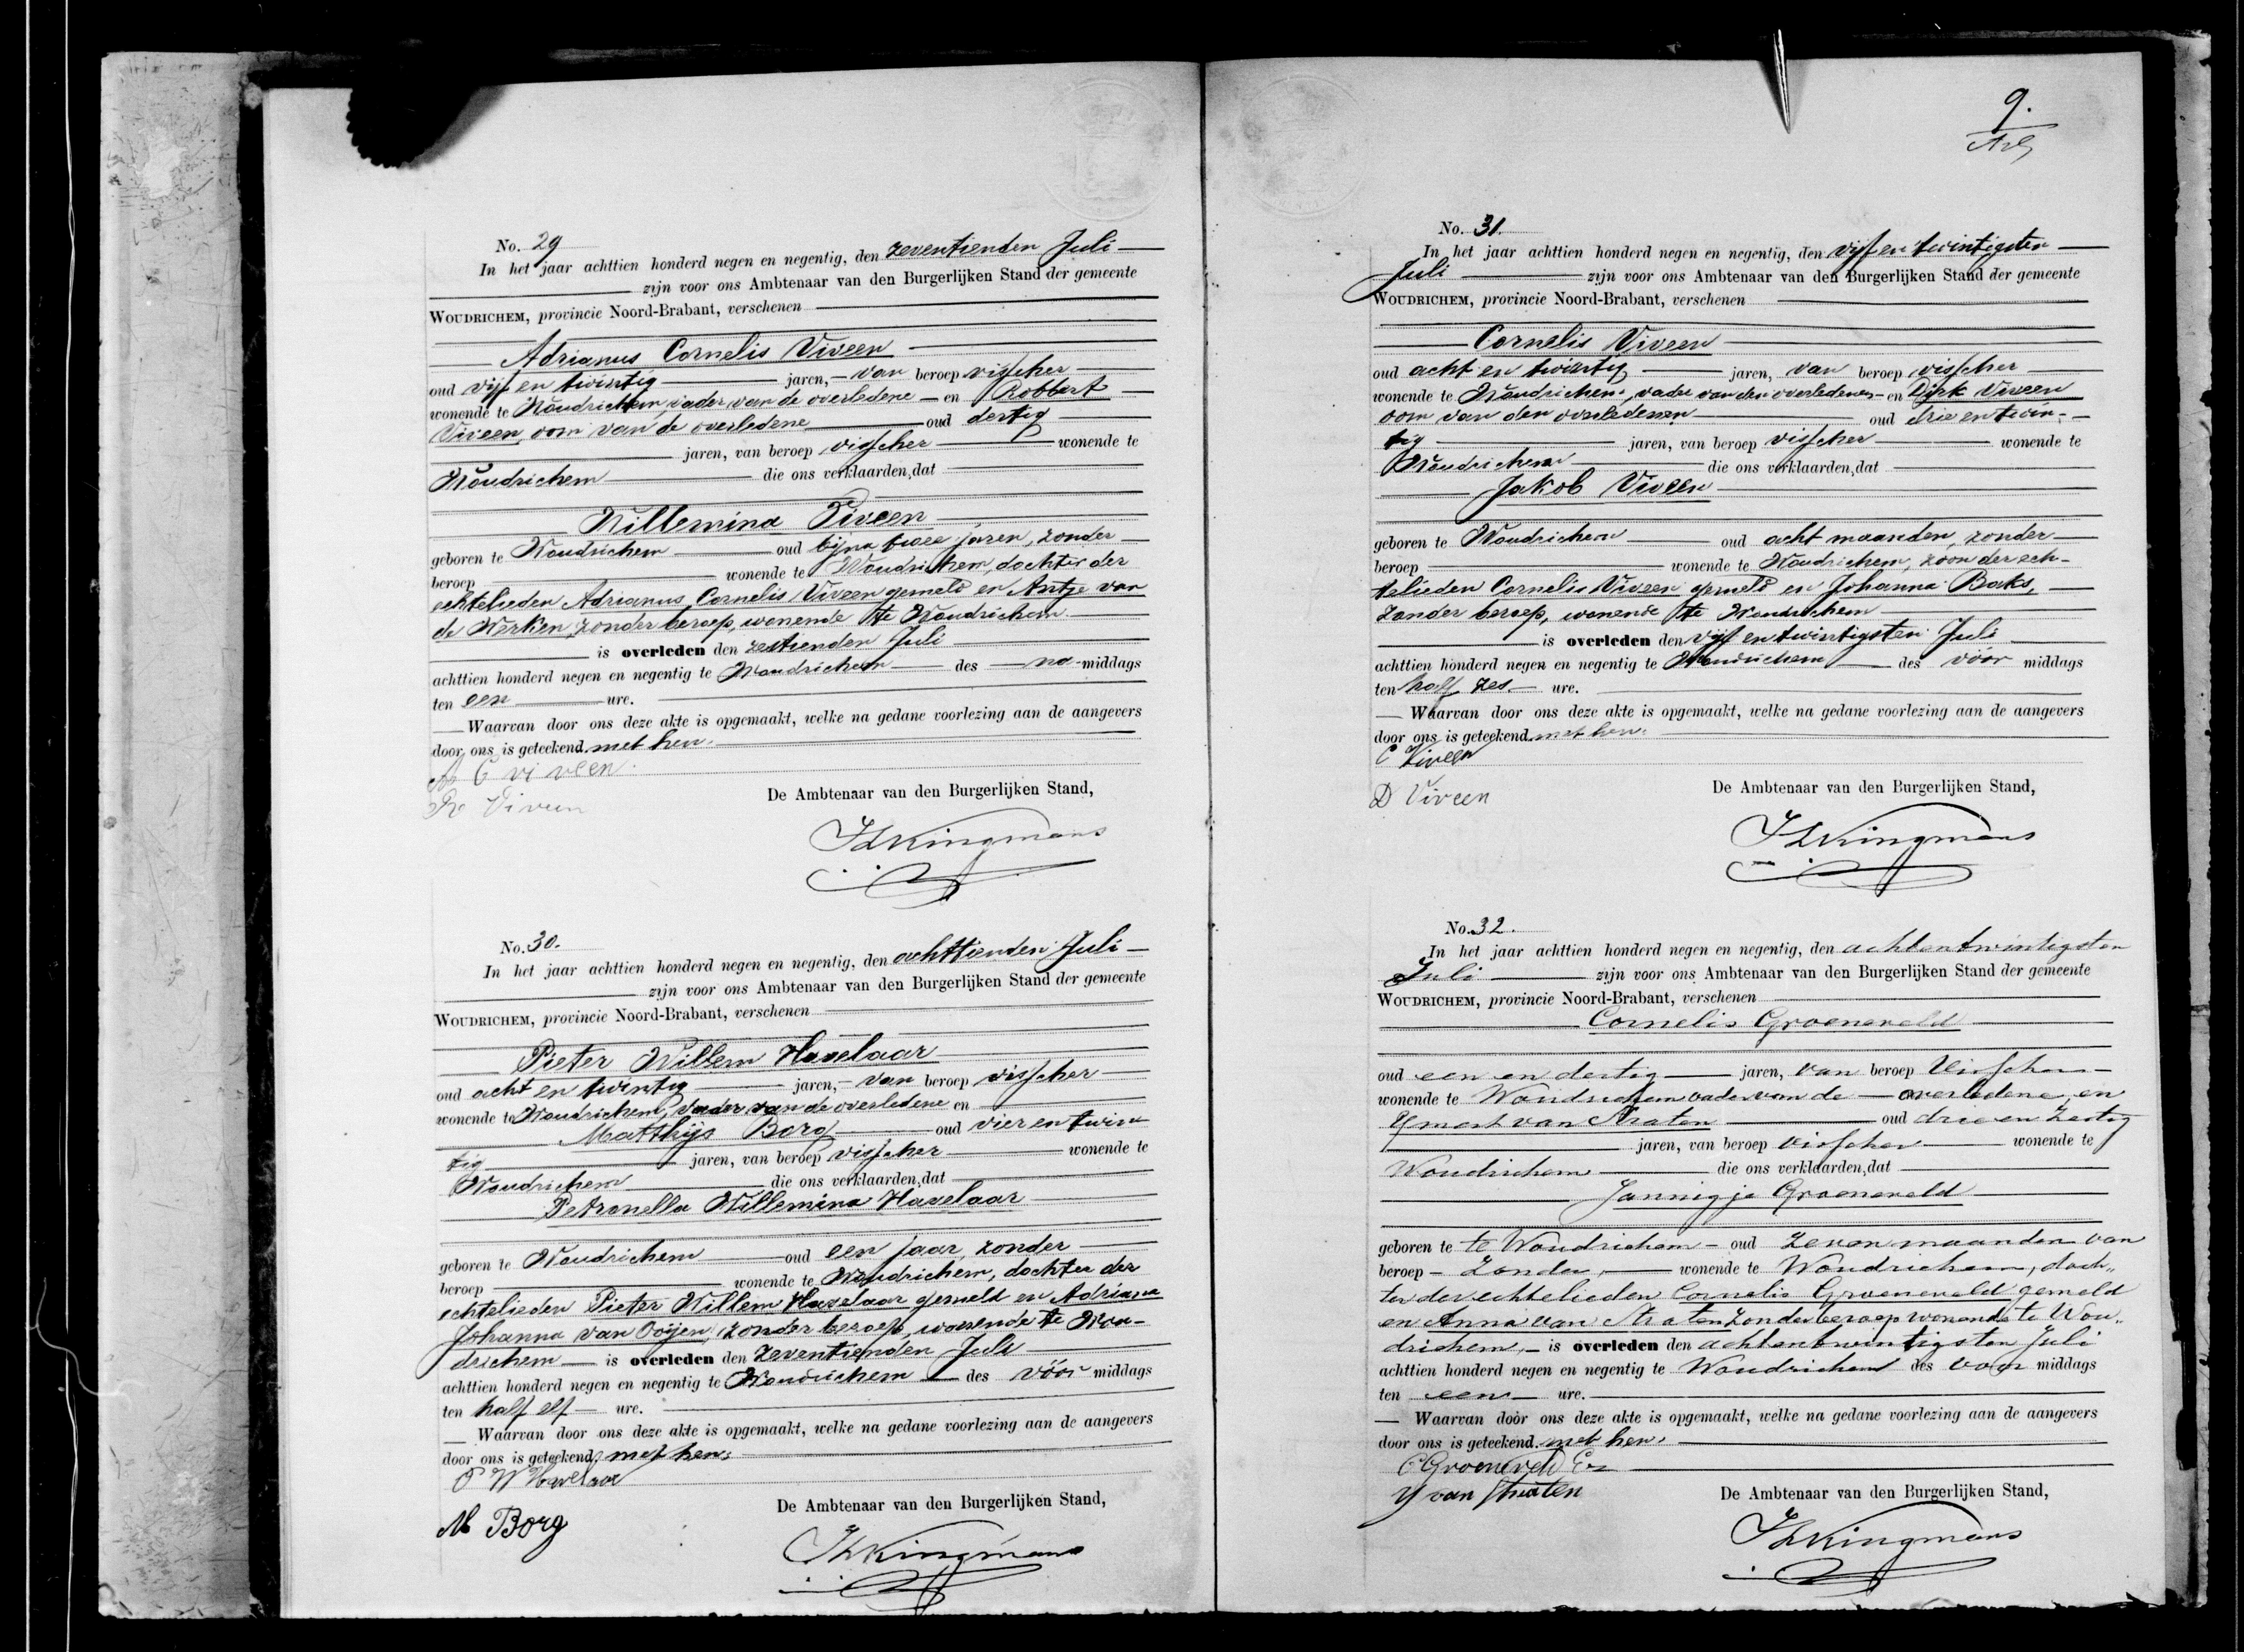 No. 29
In het jaar achttien honderd negen en negentig, den zeventienden Juli
zijn voor ons Ambtenaar van den Burgerlijken Stand der gemeente
WOUDRICHEM, provincie Noord-Brabant, verschenen
Adrianus Cornelis Viveen
oud vijf en twintig jaren, van beroep visscher
wonende te Woudrichem, vader van de overledene en Robbert
Viveen, oom van de overledene oud dertig
jaren, van beroep visscher wonende te
Woudrichem die ons verklaarden, dat
Willemina Viveen
geboren te Woudrichem oud bijna twee jaren, zonder
beroep wonende te Woudrichem, dochter der
echtelieden Adrianus Cornelis Viveen gemeld en Antje van
de Werken, zonder beroep, wonende te Woudrichem
is overleden den zestienden Juli
achttien honderd negen en negentig te Woudrichem des na-middags
ten een ure.
Waarvan door ons deze akte is opgemaakt, welke na gedane voorlezing aan de aangevers
door ons is geteekend met hen.
A C viveen
R Viveen
De Ambtenaar van den Burgerlijken Stand,
Kingmans
No. 30.
In het jaar achttien honderd negen en negentig, den achttienden Juli
zijn voor ons Ambtenaar van den Burgerlijken Stand der gemeente
WOUDRICHEM, provincie Noord-Brabant, verschenen
Pieter Willem Havelaar
oud acht en twintig jaren, van beroep visscher
wonende te Woudrichem, vader van de overledene en
Matthijs Borg oud vier en twin
tig jaren, van beroep visscher wonende te
Woudrichem die ons verklaarden, dat
Petronella Willemina Havelaar
geboren te Woudrichem oud een jaar, zonder
beroep wonende te Woudrichem, dochter der
echtelieden Pieter Willem Havelaar gemeld en Adriana
Johanna van Ooijen, zonder beroep, wonende te Wou-
drichem is overleden den zeventienden Juli
achttien honderd negen en negentig te Woudrichem des vóór middags
ten half elf ure.
Waarvan door ons deze akte is opgemaakt, welke na gedane voorlezing aan de aangevers
door ons is geteekend met hen.
P W Havelaar
M Borg
De Ambtenaar van den Burgerlijken Stand,
Kingmans
9.
No. 31.
In het jaar achttien honderd negen en negentig, den vijf en twintigsten
Juli zijn voor ons Ambtenaar van den Burgerlijken Stand der gemeente
WOUDRICHEM, provincie Noord-Brabant, verschenen
Cornelis Viveen
oud acht en twintig jaren, van beroep visscher
wonende te Woudrichem, vader van den overledenen en Dirk Viveen
oom van den overledenen oud drie en twin-
tig jaren, van beroep visscher wonende te
Woudrichem die ons verklaarden, dat
Jakob Viveen
geboren te Woudrichem oud acht maanden, zonder
beroep wonende te Woudrichem, zoon der ech-
telieden Cornelis Viveen gemeld en Johanna Baks,
zonder beroep, wonende te Woudrichem
is overleden den vijf en twintigsten Juli
achttien honderd negen en negentig te Woudrichem des vóór middags
ten half zes ure.
Waarvan door ons deze akte is opgemaakt, welke na gedane voorlezing aan de aangevers
door ons is geteekend met hen.
C Viveen
D Viveen
De Ambtenaar van den Burgerlijken Stand,
Kingmans
No. 32.
In het jaar achttien honderd negen en negentig, den achtentwintigsten
Juli zijn voor ons Ambtenaar van den Burgerlijken Stand der gemeente
WOUDRICHEM, provincie Noord-Brabant, verschenen
Cornelis Groeneveld
oud een en dertig jaren, van beroep Visscher
wonende te Woudrichem vader van de overledene, en
van Straten oud drie en zestig
jaren, van beroep visscher wonende te
Woudrichem die ons verklaarden, dat
Jannigje Groeneveld
geboren te te Woudrichem oud zeven maanden van
beroep zonder wonende te Woudrichem, doch„
ter der echtelieden Cornelis Groeneveld gemeld
en Anna van Straten zonder beroep wonende te Wou„
drichem, is overleden den achtentwintigsten Juli
achttien honderd negen en negentig te Woudrichem des voor middags
ten een ure.
Waarvan door ons deze akte is opgemaakt, welke na gedane voorlezing aan de aangevers
door ons is geteekend met hen.
C Groeneveld
Y van Straten
De Ambtenaar van den Burgerlijken Stand,
Kingmans